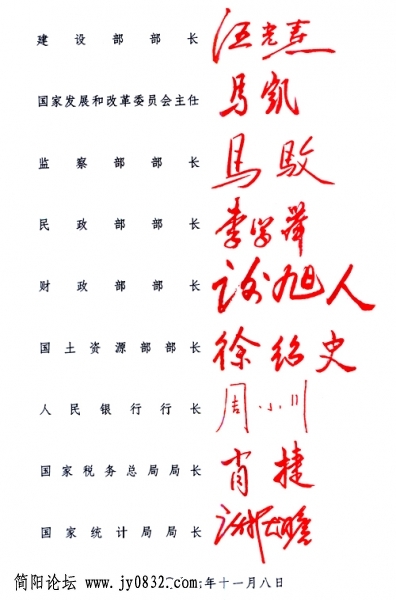 建设部部长 汪光焘
国家发展和改革委员会主任 马凯
监察部部长 马馼
民政部部长 李学举
财政部部长 谢旭人
国土资源部部长 徐绍史
人民银行行长 周小川
国家税务总局局长 肖捷
国家统计局局长 谢伏瞻
简阳论坛 www.jy0832.com 年十一月八日